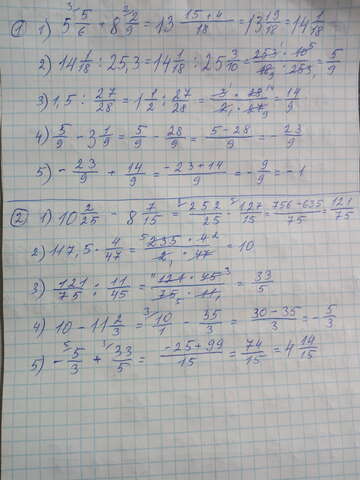 ① 1) 5 5/6 + 8 2/9 = 13 (15+4)/18 = 13 19/18 = 14 1/18
2) 14 1/18 : 25,3 = 14 1/18 : 25 3/10 = (253 · 10)/(18 · 253) = 5/9
3) 1,5 : 27/28 = 1 1/2 : 27/28 = (3 · 28)/(2 · 27) = 14/9
4) 5/9 - 3 1/9 = 5/9 - 28/9 = (5-28)/9 = - 23/9
5) - 23/9 + 14/9 = (-23+14)/9 = - 9/9 = -1
② 1) 10 2/25 - 8 7/15 = 252/25 - 127/15 = (756-635)/75 = 121/75
2) 117,5 · 4/47 = (235 · 4)/(2 · 47) = 10
3) 121/75 : 11/45 = (121 · 45)/(75 · 11) = 33/5
4) 10 - 11 2/3 = 10/1 - 35/3 = (30-35)/3 = - 5/3
5) - 5/3 + 33/5 = (-25+99)/15 = 74/15 = 4 14/15